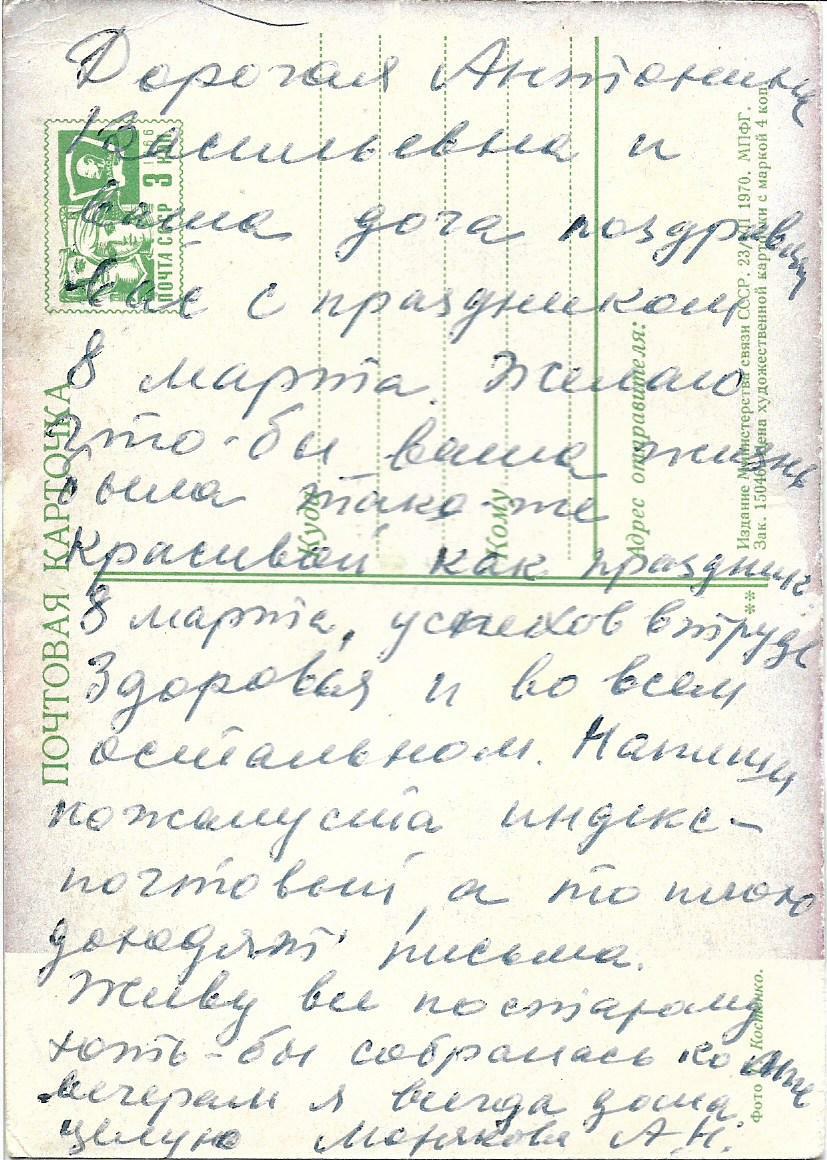 Дорогая Антонина
Васильевна и
ваша доча поздравляю
вас с праздником
8 марта. Желаю
что-бы ваша жизнь
была тако-же
красивой как праздник
8 марта, успехов в труде
Здоровья и во всем
остальном. Напиши
пожалуста индекс-
почтовый, а то плохо
доходят письма.
Живу все постарому
хоть-бы собралась ко мне
вечерам я всегда дома.
целую Монякова А.Н.
ПОЧТОВАЯ КАРТОЧКА
ПОЧТА СССР 3
1966
Куда
Кому
Адрес отправителя:
Издание Министерства связи СССР. 1970. МПФГ.
Зак. Цена художественной карточки с маркой 4 коп.
**
Фото Костенко.